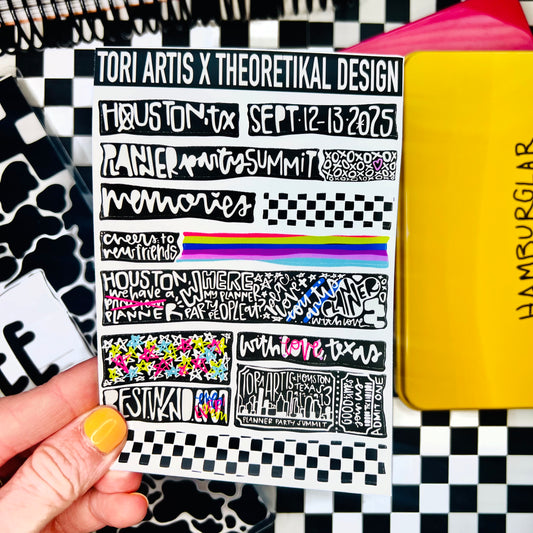 TORI ARTIS X THEORETIKAL DESIGN
HOUSTON, TX
SEPT·12-13·2025
PLANNER party SUMMIT
XOXOXO
memories
cheers to
new friends
HOUSTON
we have a
PLANNER
WHERE
MY PLANNER
PEOPLE AT?
with love
with love, texas
BEST WKND
TORI ARTIS
HOUSTON
TEXAS
PLANNER PARTY SUMMIT
ADMIT ONE
HAMBURGLAR
EE